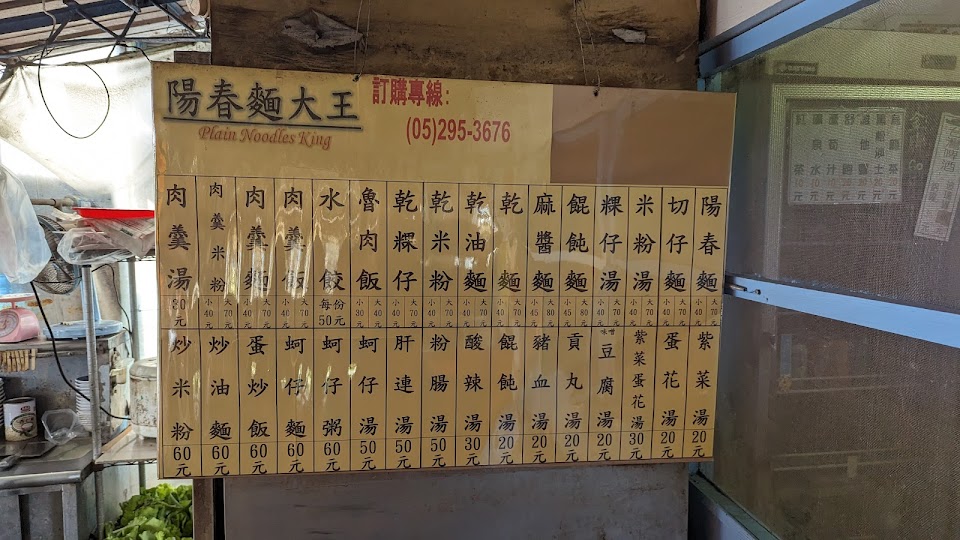 陽春麵大王
Plain Noodles King
訂購專線:
(05)295-3676
陽春麵 小40元 大70元
切仔麵 小40元 大70元
米粉湯 小40元 大70元
粿仔湯 小40元 大70元
餛飩麵 小45元 大80元
麻醬麵 小45元 大80元
乾麵 小40元 大70元
乾油麵 小40元 大70元
乾米粉 小40元 大70元
乾粿仔 小40元 大70元
魯肉飯 小30元
水餃 每份50元
肉羹飯 小40元 大70元
肉羹麵 小40元 大70元
肉羹米粉 小40元 大70元
肉羹湯 30元
紫菜湯 20元
蛋花湯 20元
紫菜蛋花湯 30元
味噌豆腐湯 20元
貢丸湯 20元
豬血湯 20元
餛飩湯 20元
酸辣湯 30元
粉腸湯 50元
肝連湯 50元
蚵仔湯 50元
蚵仔粥 60元
蚵仔麵 60元
蛋炒飯 60元
炒油麵 60元
炒米粉 60元